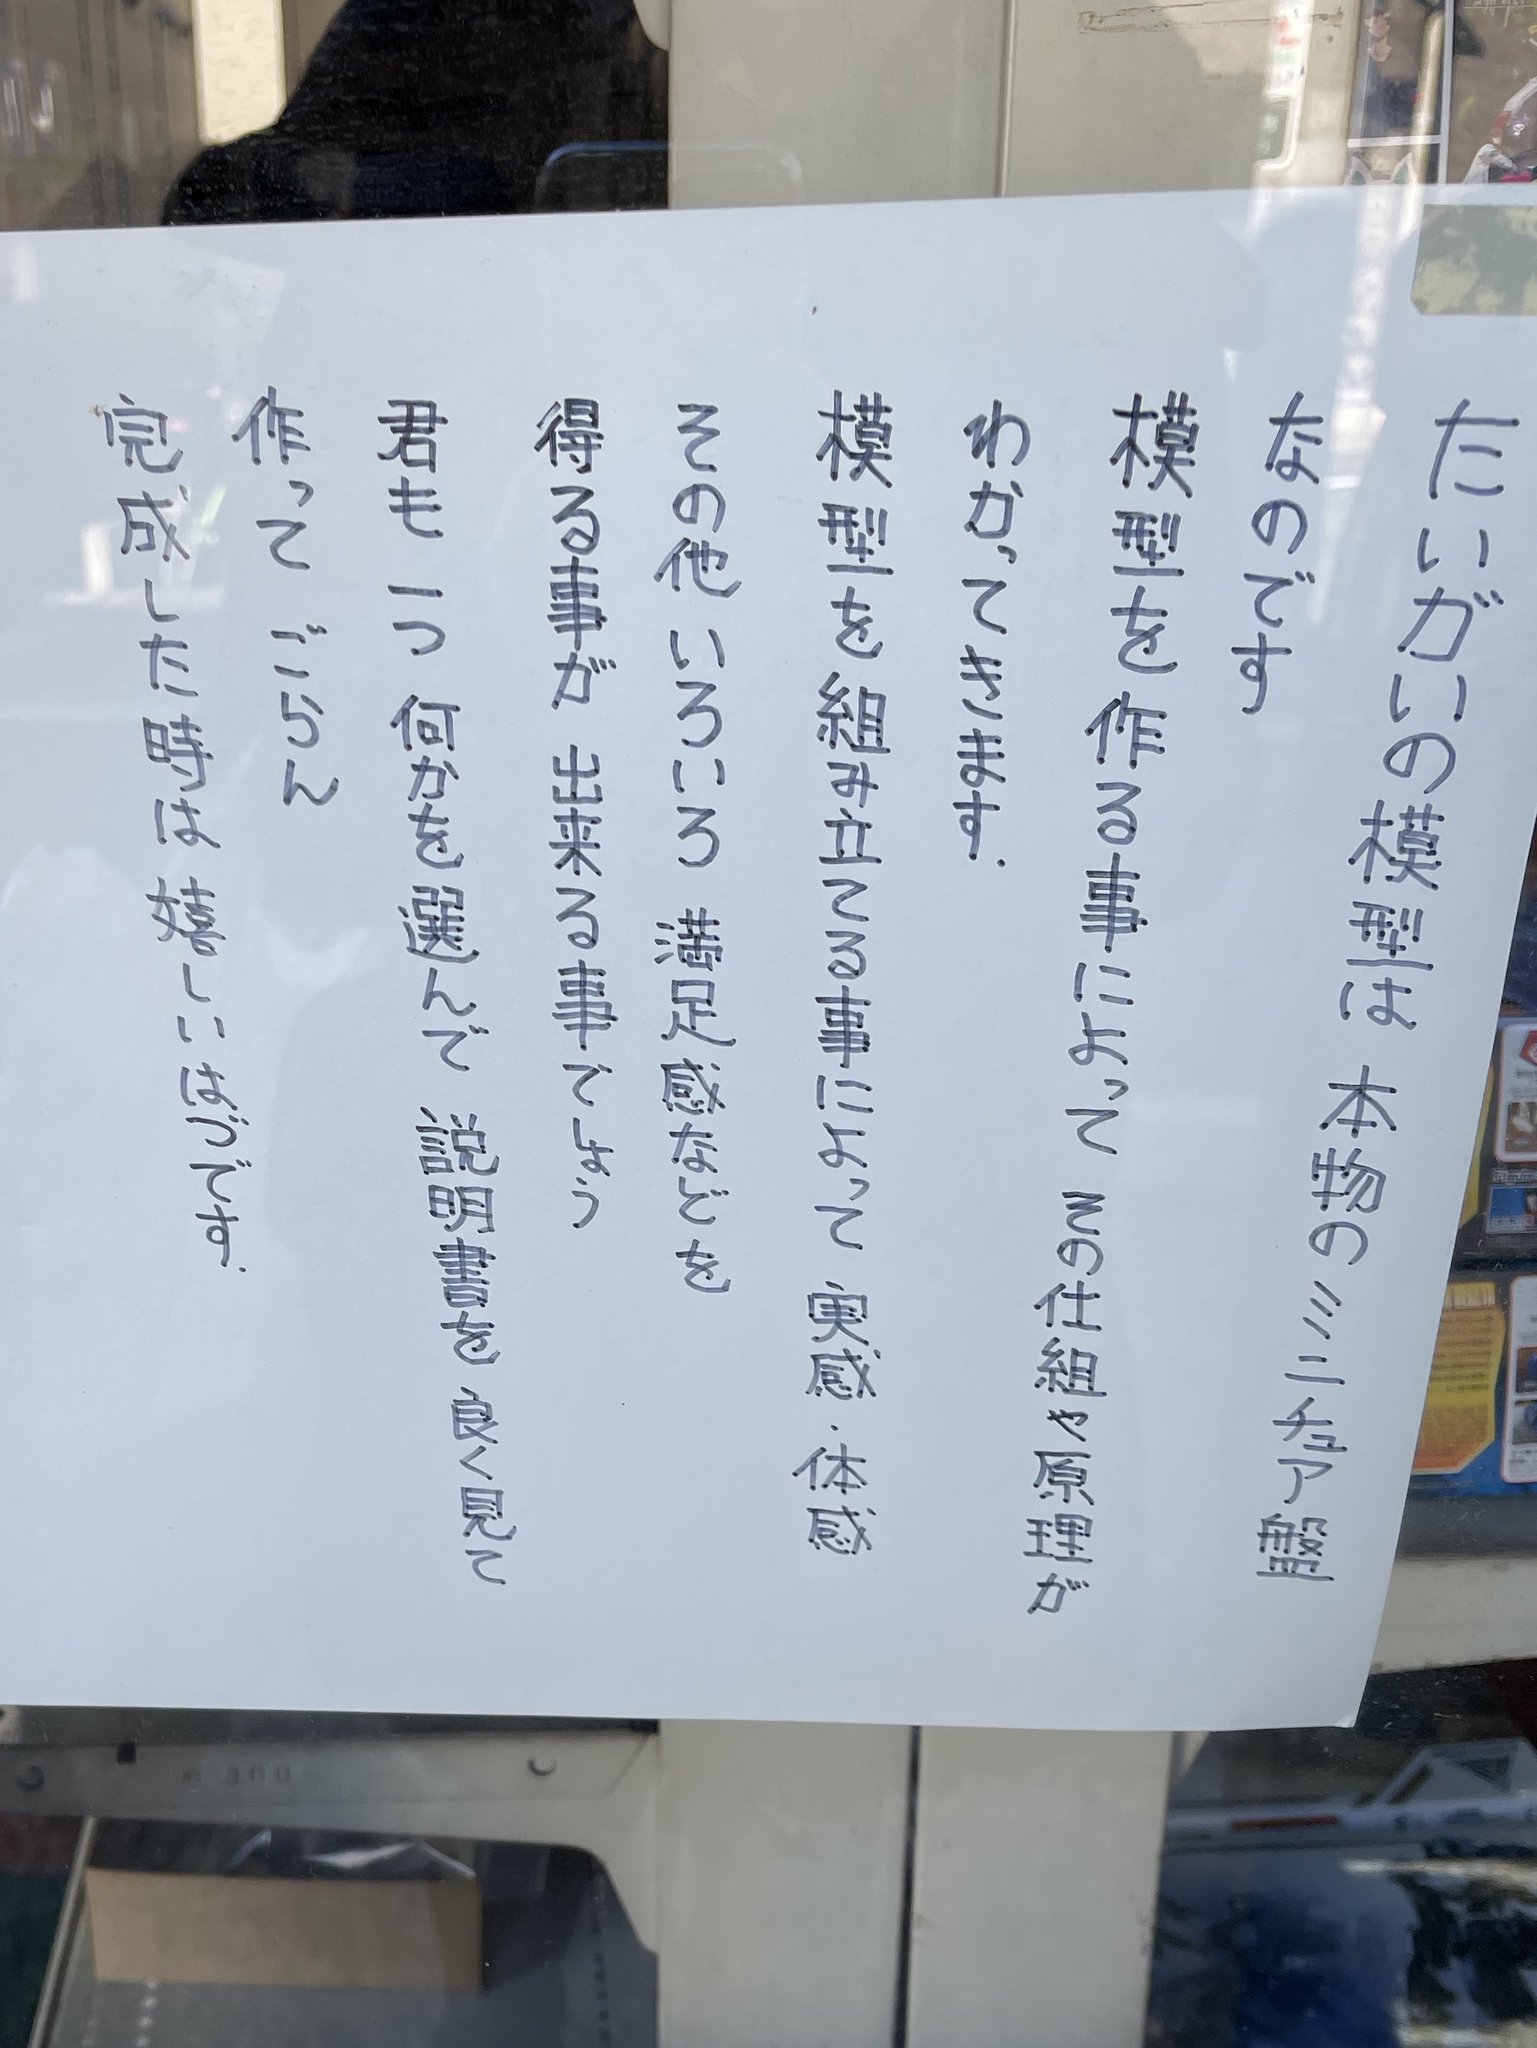 たいがいの模型は 本物のミニチュア盤
なのです
模型を作る事によって その仕組や原理が
わかってきます.
模型を組み立てる事によって 実感・体感
その他 いろいろ 満足感などを
得る事が 出来る事でしょう
君も 一つ 何かを選んで 説明書を 良く見て
作って ごらん
完成した時は 嬉しいはづです.
300